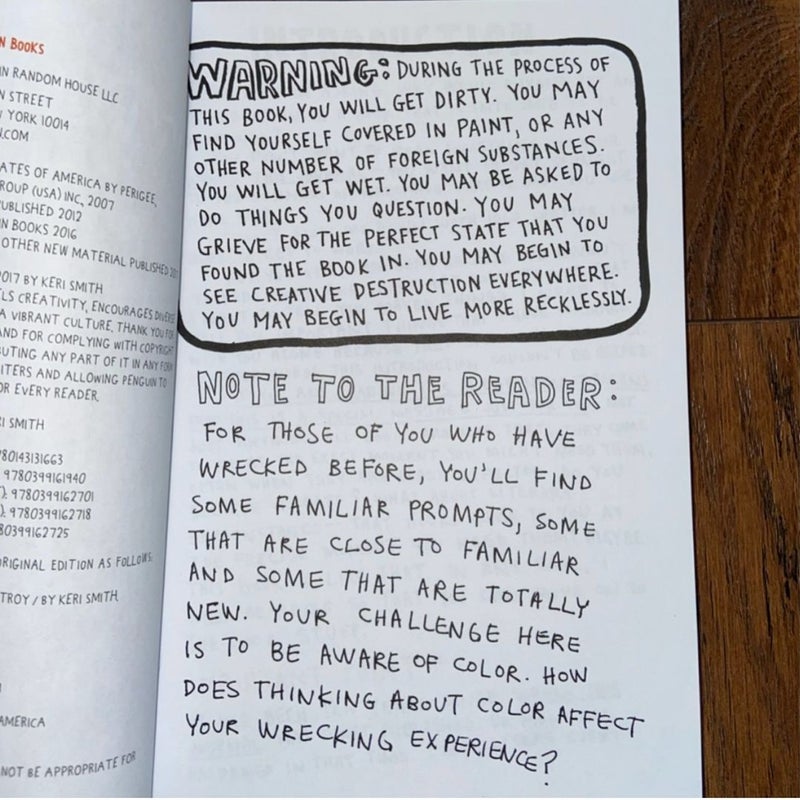 N BOOKS
IN RANDOM HOUSE LLC
N STREET
YORK 10014
.COM
ATES OF AMERICA BY PERIGEE,
ROUP (USA) INC, 2007
PUBLISHED 2012
IN BOOKS 2016
OTHER NEW MATERIAL PUBLISHED
2017 BY KERI SMITH
LS CREATIVITY, ENCOURAGES
A VIBRANT CULTURE. THANK YOU
AND FOR COMPLYING WITH COPYRIGHT
BUTING ANY PART OF IT IN ANY
ITERS AND ALLOWING PENGUIN TO
OR EVERY READER.
RI SMITH
780143131663
9780399161940
): 9780399162701
): 9780399162718
80399162725
ORIGINAL EDITION AS FOLLOWS:
TROY / BY KERI SMITH.
AMERICA
NOT BE APPROPRIATE FOR
WARNING: DURING THE PROCESS OF
THIS BOOK, YOU WILL GET DIRTY. YOU MAY
FIND YOURSELF COVERED IN PAINT, OR ANY
OTHER NUMBER OF FOREIGN SUBSTANCES.
YOU WILL GET WET. YOU MAY BE ASKED TO
DO THINGS YOU QUESTION. YOU MAY
GRIEVE FOR THE PERFECT STATE THAT YOU
FOUND THE BOOK IN. YOU MAY BEGIN TO
SEE CREATIVE DESTRUCTION EVERYWHERE.
YOU MAY BEGIN TO LIVE MORE RECKLESSLY.
NOTE TO THE READER:
FOR THOSE OF YOU WHO HAVE
WRECKED BEFORE, YOU'LL FIND
SOME FAMILIAR PROMPTS, SOME
THAT ARE CLOSE TO FAMILIAR
AND SOME THAT ARE TOTALLY
NEW. YOUR CHALLENGE HERE
IS TO BE AWARE OF COLOR. HOW
DOES THINKING ABOUT COLOR AFFECT
YOUR WRECKING EXPERIENCE?